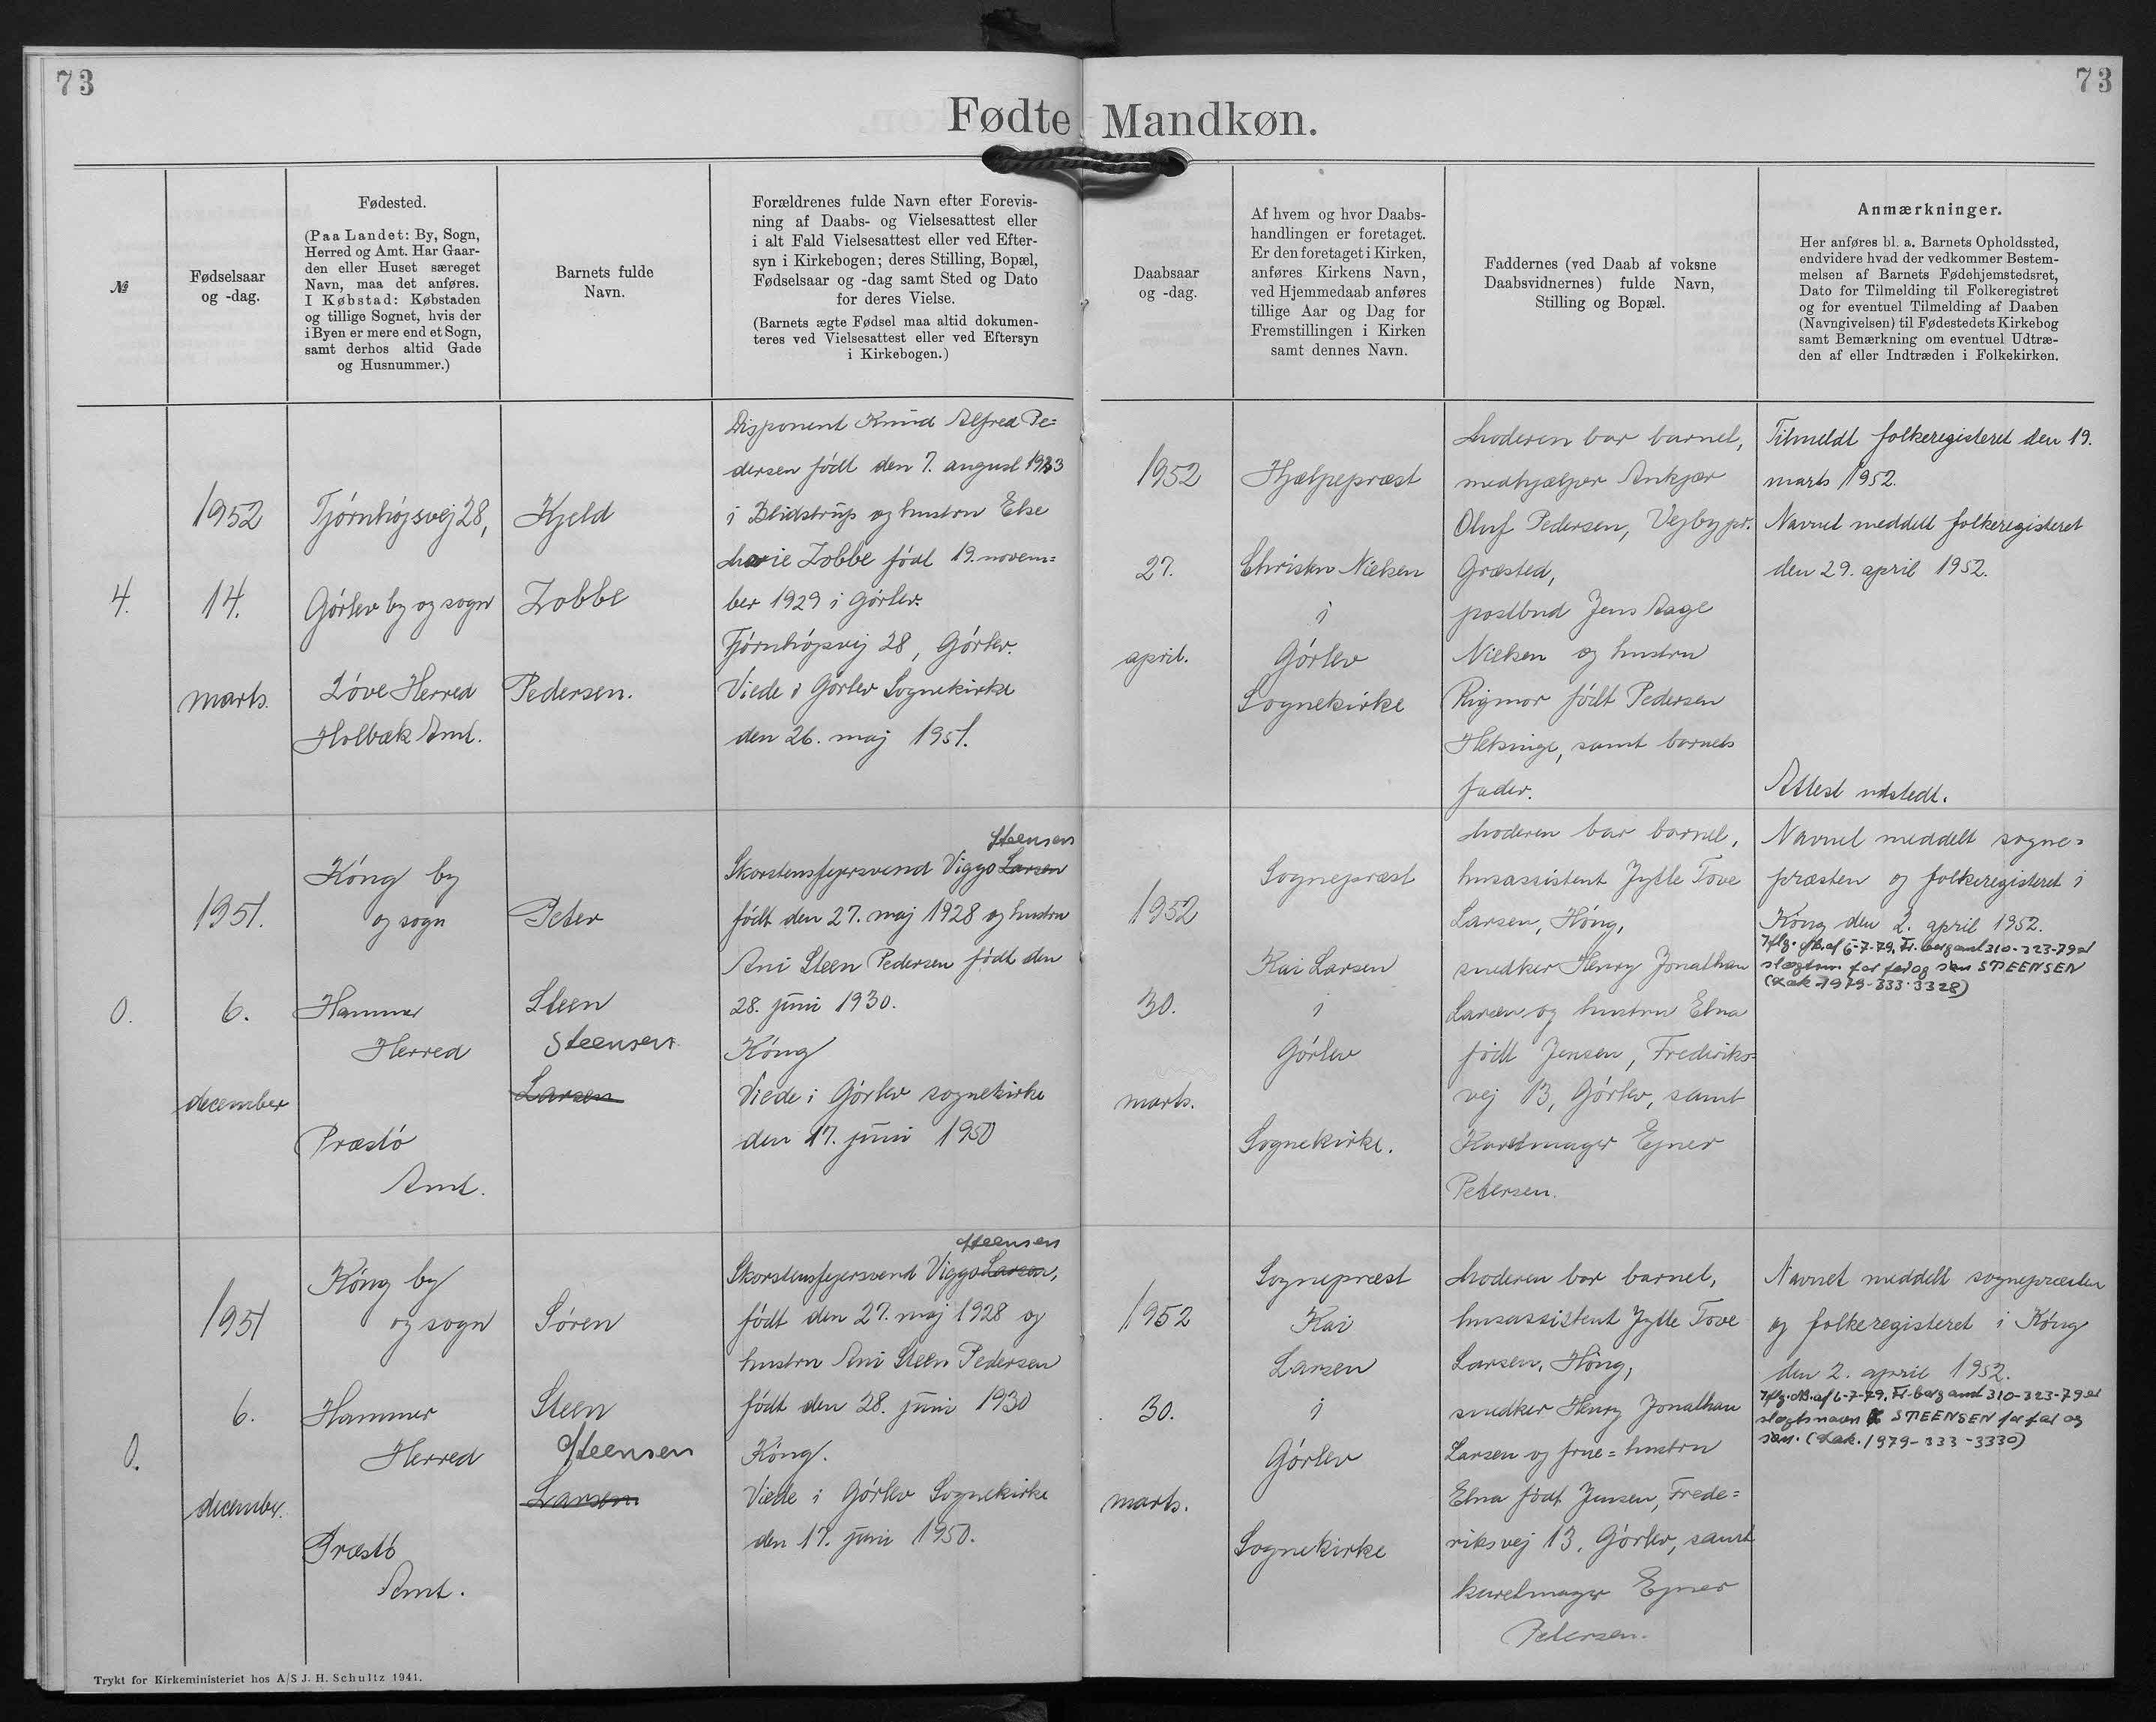 73
73
Fødte Mandkøn.
№
Fødselsaar
og -dag.
Fødested.
(Paa Landet: By, Sogn,
Herred og Amt. Har Gaar-
den eller Huset særeget
Navn, maa det anføres.
I Købstad: Købstaden
og tillige Sognet, hvis der
i Byen er mere end et Sogn,
samt derhos altid Gade
og Husnummer.)
Barnets fulde
Navn.
Forældrenes fulde Navn efter Forevis-
ning af Daabs- og Vielsesattest eller
i alt Fald Vielsesattest eller ved Efter-
syn i Kirkebogen; deres Stilling, Bopæl,
Fødselsaar og -dag samt Sted og Dato
for deres Vielse.
(Barnets ægte Fødsel maa altid dokumen-
teres ved Vielsesattest eller ved Eftersyn
i Kirkebogen.)
Daabsaar
og -dag.
Af hvem og hvor Daabs-
handlingen er foretaget.
Er den foretaget i Kirken,
anføres Kirkens Navn,
ved Hjemmedaab anføres
tillige Aar og Dag for
Fremstillingen i Kirken
samt dennes Navn.
Faddernes (ved Daab af voksne
Daabsvidnernes) fulde Navn,
Stilling og Bopæl.
Anmærkninger.
Her anføres bl. a. Barnets Opholdssted,
endvidere hvad der vedkommer Bestem-
melsen af Barnets Fødehjemstedsret,
Dato for Tilmelding til Folkeregistret
og for eventuel Tilmelding af Daaben
(Navngivelsen) til Fødestedets Kirkebog
samt Bemærkning om eventuel Udtræ-
den af eller Indtræden i Folkekirken.
4.
1952
14.
marts.
Tjørnhøjsvej 28,
Gørlev by og sogn
Løve Herred
Holbæk Amt.
Kjeld
Zobbe
Pedersen.
Disponent Knud Alfred Pe-
dersen født den 7. august 1923
i Blidstrup og hustru Else
Marie Zobbe født 19. novem-
ber 1929 i Gørlev.
Tjørnhøjsvej 28, Gørlev.
Viede i Gørlev Sognekirke
den 26. maj 1951.
1952
27.
april.
Hjælpepræst
Christen Nielsen
i
Gørlev
Sognekirke
Moderen bar barnet,
medhjælper Ankjær
Oluf Pedersen, Vejby pr.
Græsted,
postbud Jens Aage
Nielsen og hustru
Rigmor født Pedersen
Helsinge, samt barnets
fader.
Tilmeldt folkeregisteret den 19.
marts 1952.
Navnet meddelt folkeregisteret
den 29. april 1952.
Attest udstedt.
0.
1951.
6.
december
Køng by
og sogn
Hammer
Herred
Præstø
Amt.
Peter
Steen
Steensen
Larsen
Steensen
Skorstensfejersvend Viggo Larsen
født den 27. maj 1928 og hustru
Ani Steen Pedersen født den
28. juni 1930.
Køng
Viede i Gørlev sognekirke
den 17. juni 1950
1952
30.
marts.
Sognepræst
Kai Larsen
i
Gørlev
Sognekirke.
Moderen bar barnet,
husassistent Jytte Tove
Larsen, Høng,
snedker Henry Jonathan
Larsen og hustru Elna
født Jensen, Frederiks-
vej 13, Gørlev, samt
Karetmager Ejner
Petersen.
Navnet meddelt sogne-
præsten og folkeregisteret i
Køng den 2. april 1952.
Iflg. NB. af 6-7-79, Fr.borg amt 310-323-79 er
slægtsn for far og søn STEENSEN
(Lak 1979-333-3328)
0.
1951
6.
december.
Køng by
og sogn
Hammer
Herred
Præstø
Amt.
Søren
Steen
Steensen
Larsen
Steensen
Skorstensfejersvend Viggo Larsen,
født den 27. maj 1928 og
hustru Ani Steen Pedersen
født den 28. juni 1930
Køng.
Viede i Gørlev Sognekirke
den 17. juni 1950.
1952
30.
marts.
Sognepræst
Kai
Larsen
i
Gørlev
Sognekirke
Moderen bar barnet,
husassistent Jytte Tove
Larsen, Høng,
snedker Henry Jonathan
Larsen og frue = hustru
Elna født Jensen, Frede-
riksvej 13, Gørlev, samt
karetmager Ejner
Petersen.
Navnet meddelt sognepræsten
og folkeregisteret i Køng
den 2. april 1952.
Iflg. NB. af 6-7-79, Fr.borg amt 310-323-79 er
slægtsnavn STEENSEN for far og
søn. (Lak. 1979-333-3330)
Trykt for Kirkeministeriet hos A/S J. H. Schultz 1941.